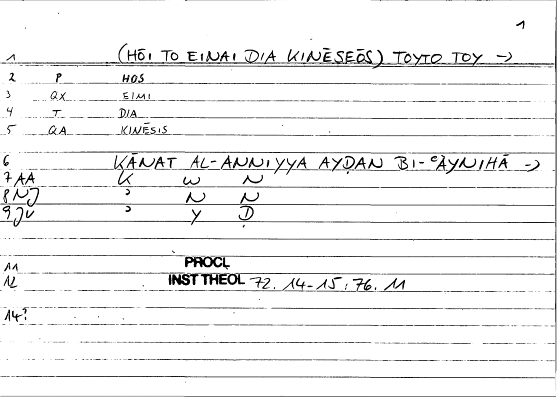 1
1 (HŌI TO EINAI DIA KINĒSEŌS) TOYTO TOY →
2 P HOS
3 QX EIMI
4 T DIA
5 QA KINĒSIS
6 KĀNAT AL-ANNIYYA AYḌAN BI-ʿAYNIHĀ →
7 AA K W N
8 NJ ʾ N N
9 JV ʾ Y Ḍ
11 PROCL
12 INST THEOL 72. 14-15; 76. 11
14?